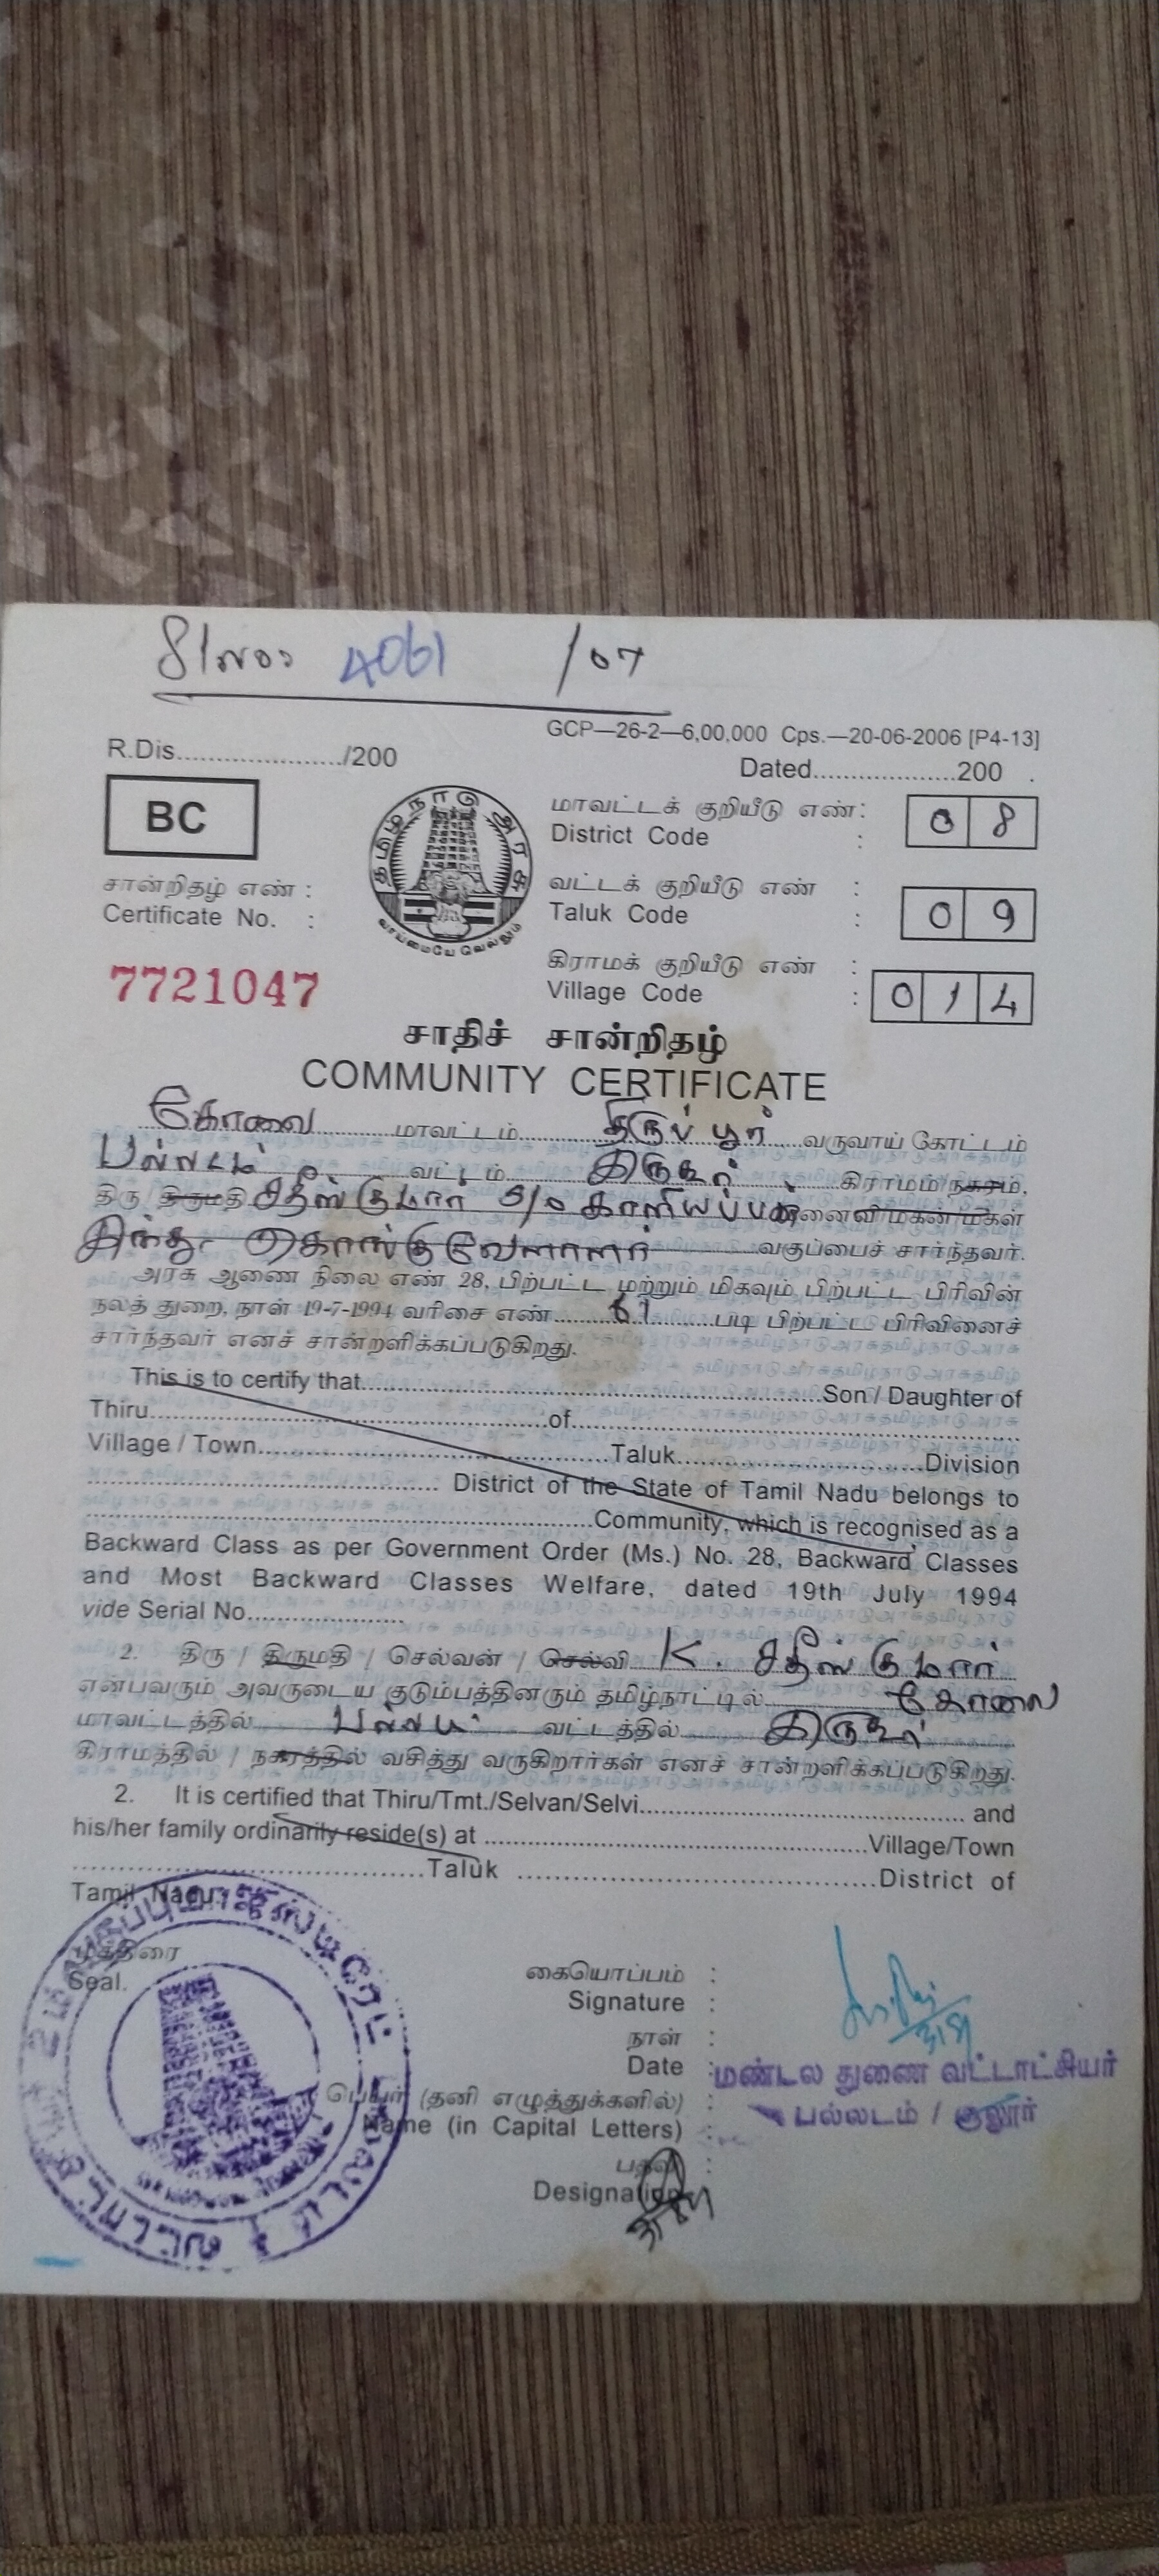 4061 /07
GCP—26-2—6,00,000 Cps.—20-06-2006 [P4-13]
R.Dis....................../200
Dated...................200 .
BC
தமிழ்நாடு அரசு
வாய்மையே வெல்லும்
மாவட்டக் குறியீடு எண் :
District Code : 0 8
சான்றிதழ் எண் :
Certificate No. :
வட்டக் குறியீடு எண் :
Taluk Code : 0 9
கிராமக் குறியீடு எண் :
Village Code : 0 1 4
7721047
சாதிச் சான்றிதழ்
COMMUNITY CERTIFICATE
கோவை மாவட்டம் திருப்பூர் வருவாய் கோட்டம்
பல்லடம் வட்டம் இருகூர் கிராமம் நகரம்,
திரு திருமதி சதீஸ்குமார் S/o காளியப்பன் மனைவி மகன் மகள்
இந்து கொங்கு வேளாளர் வகுப்பைச் சார்ந்தவர்.
அரசு ஆணை நிலை எண் 28, பிற்பட்ட மற்றும் மிகவும் பிற்பட்ட பிரிவின்
நலத் துறை, நாள் 19-7-1994 வரிசை எண் 61 படி பிற்பட்ட பிரிவினைச்
சார்ந்தவர் எனச் சான்றளிக்கப்படுகிறது.
This is to certify that..................................................Son / Daughter of
Thiru..................................................of..................................................
Village / Town..................................................Taluk..............................Division
.................................................. District of the State of Tamil Nadu belongs to
..................................................Community, which is recognised as a
Backward Class as per Government Order (Ms.) No. 28, Backward Classes
and Most Backward Classes Welfare, dated 19th July 1994
vide Serial No......................
2. திரு / திருமதி / செல்வன் / செல்வி K. சதீஸ்குமார்
என்பவரும் அவருடைய குடும்பத்தினரும் தமிழ்நாட்டில் கோவை
மாவட்டத்தில் பல்லடம் வட்டத்தில் இருகூர்
கிராமத்தில் / நகரத்தில் வசித்து வருகிறார்கள் எனச் சான்றளிக்கப்படுகிறது.
2. It is certified that Thiru/Tmt./Selvan/Selvi........................................ and
his/her family ordinarily reside(s) at ..................................................Village/Town
........................................Taluk ........................................District of
Tamil Nadu.
முத்திரை
Seal.
கையொப்பம் :
Signature :
நாள் :
Date :
மண்டல துணை வட்டாட்சியர்
பெயர் (தனி எழுத்துக்களில்) :
பல்லடம் / சூலூர்
Name (in Capital Letters) :
பதவி :
Designation